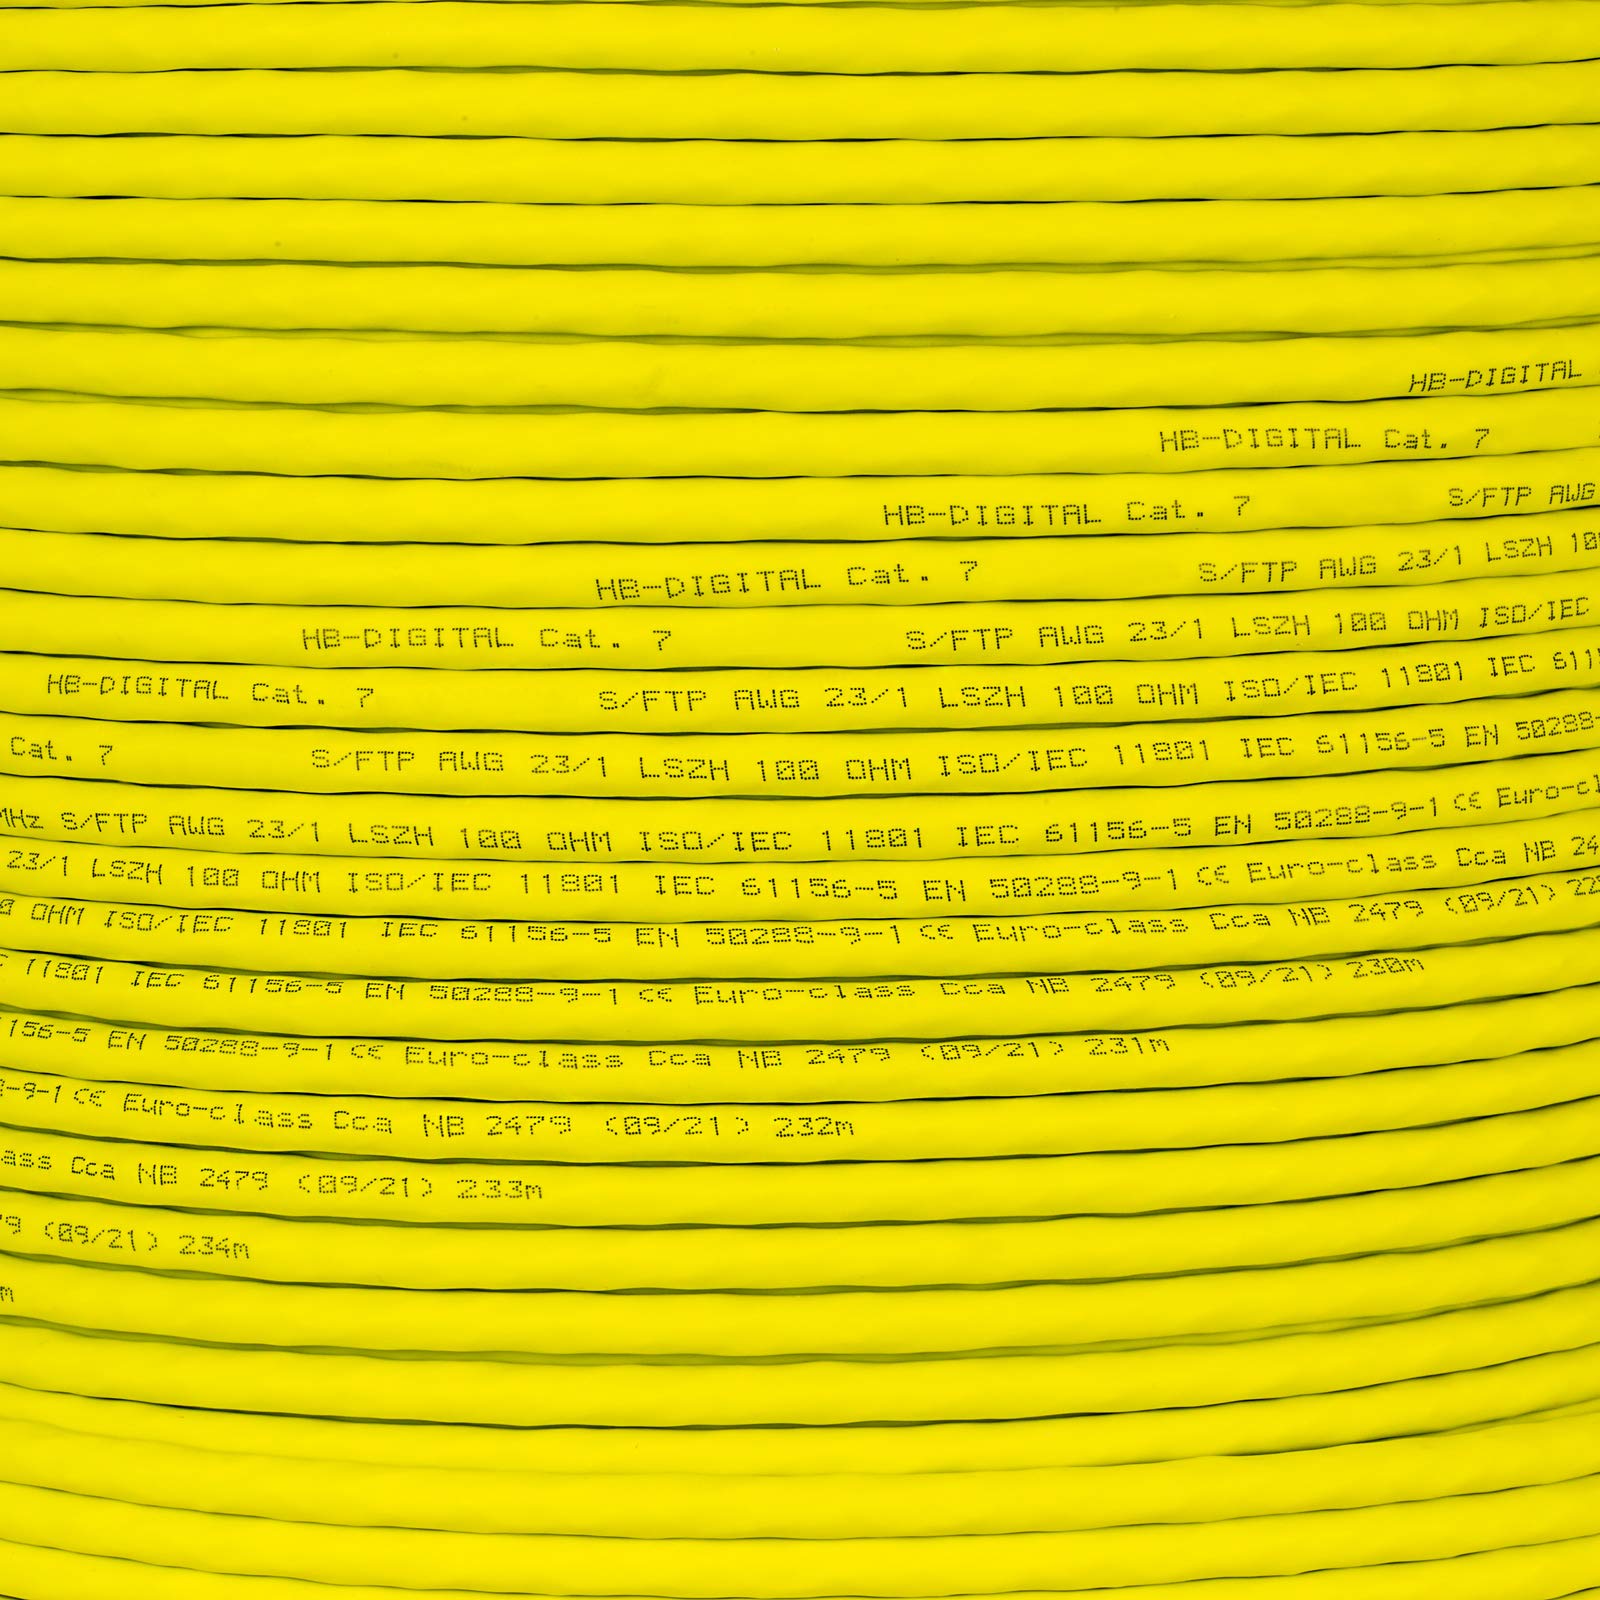 HB-DIGITAL
HB-DIGITAL Cat. 7
HB-DIGITAL Cat. 7 S/FTP AWG
HB-DIGITAL Cat. 7 S/FTP AWG 23/1 LSZH
HB-DIGITAL Cat. 7 S/FTP AWG 23/1 LSZH 100 OHM ISO/IEC
HB-DIGITAL Cat. 7 S/FTP AWG 23/1 LSZH 100 OHM ISO/IEC 11801 IEC
Cat. 7 S/FTP AWG 23/1 LSZH 100 OHM ISO/IEC 11801 IEC 61156-5 EN 50288-
MHz S/FTP AWG 23/1 LSZH 100 OHM ISO/IEC 11801 IEC 61156-5 EN 50288-9-1 CE Euro-cl
23/1 LSZH 100 OHM ISO/IEC 11801 IEC 61156-5 EN 50288-9-1 CE Euro-class Cca NB 24
OHM ISO/IEC 11801 IEC 61156-5 EN 50288-9-1 CE Euro-class Cca NB 2479 (09/21)
11801 IEC 61156-5 EN 50288-9-1 CE Euro-class Cca NB 2479 (09/21) 230m
156-5 EN 50288-9-1 CE Euro-class Cca NB 2479 (09/21) 231m
-9-1 CE Euro-class Cca NB 2479 (09/21) 232m
ass Cca NB 2479 (09/21) 233m
9 (09/21) 234m
m